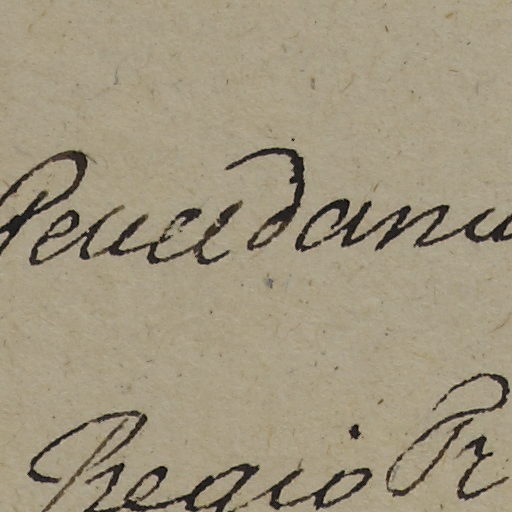 Peucedanu
Regio Pr